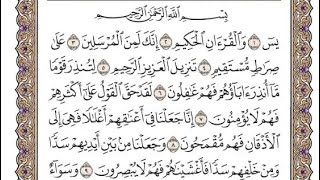 بِسْمِ ٱللَّهِ ٱلرَّحْمَٰنِ ٱلرَّحِيمِ
يسٓ ۝١ وَٱلْقُرْءَانِ ٱلْحَكِيمِ ۝٢ إِنَّكَ لَمِنَ ٱلْمُرْسَلِينَ ۝٣ عَلَىٰ
صِرَٰطٍ مُّسْتَقِيمٍ ۝٤ تَنزِيلَ ٱلْعَزِيزِ ٱلرَّحِيمِ ۝٥ لِتُنذِرَ قَوْمًا
مَّآ أُنذِرَ ءَابَآؤُهُمْ فَهُمْ غَٰفِلُونَ ۝٦ لَقَدْ حَقَّ ٱلْقَوْلُ عَلَىٰٓ أَكْثَرِهِمْ
فَهُمْ لَا يُؤْمِنُونَ ۝٧ إِنَّا جَعَلْنَا فِىٓ أَعْنَٰقِهِمْ أَغْلَٰلًا فَهِىَ إِلَى
ٱلْأَذْقَانِ فَهُم مُّقْمَحُونَ ۝٨ وَجَعَلْنَا مِنۢ بَيْنِ أَيْدِيهِمْ سَدًّا
وَمِنْ خَلْفِهِمْ سَدًّا فَأَغْشَيْنَٰهُمْ فَهُمْ لَا يُبْصِرُونَ ۝٩ وَسَوَآءٌ